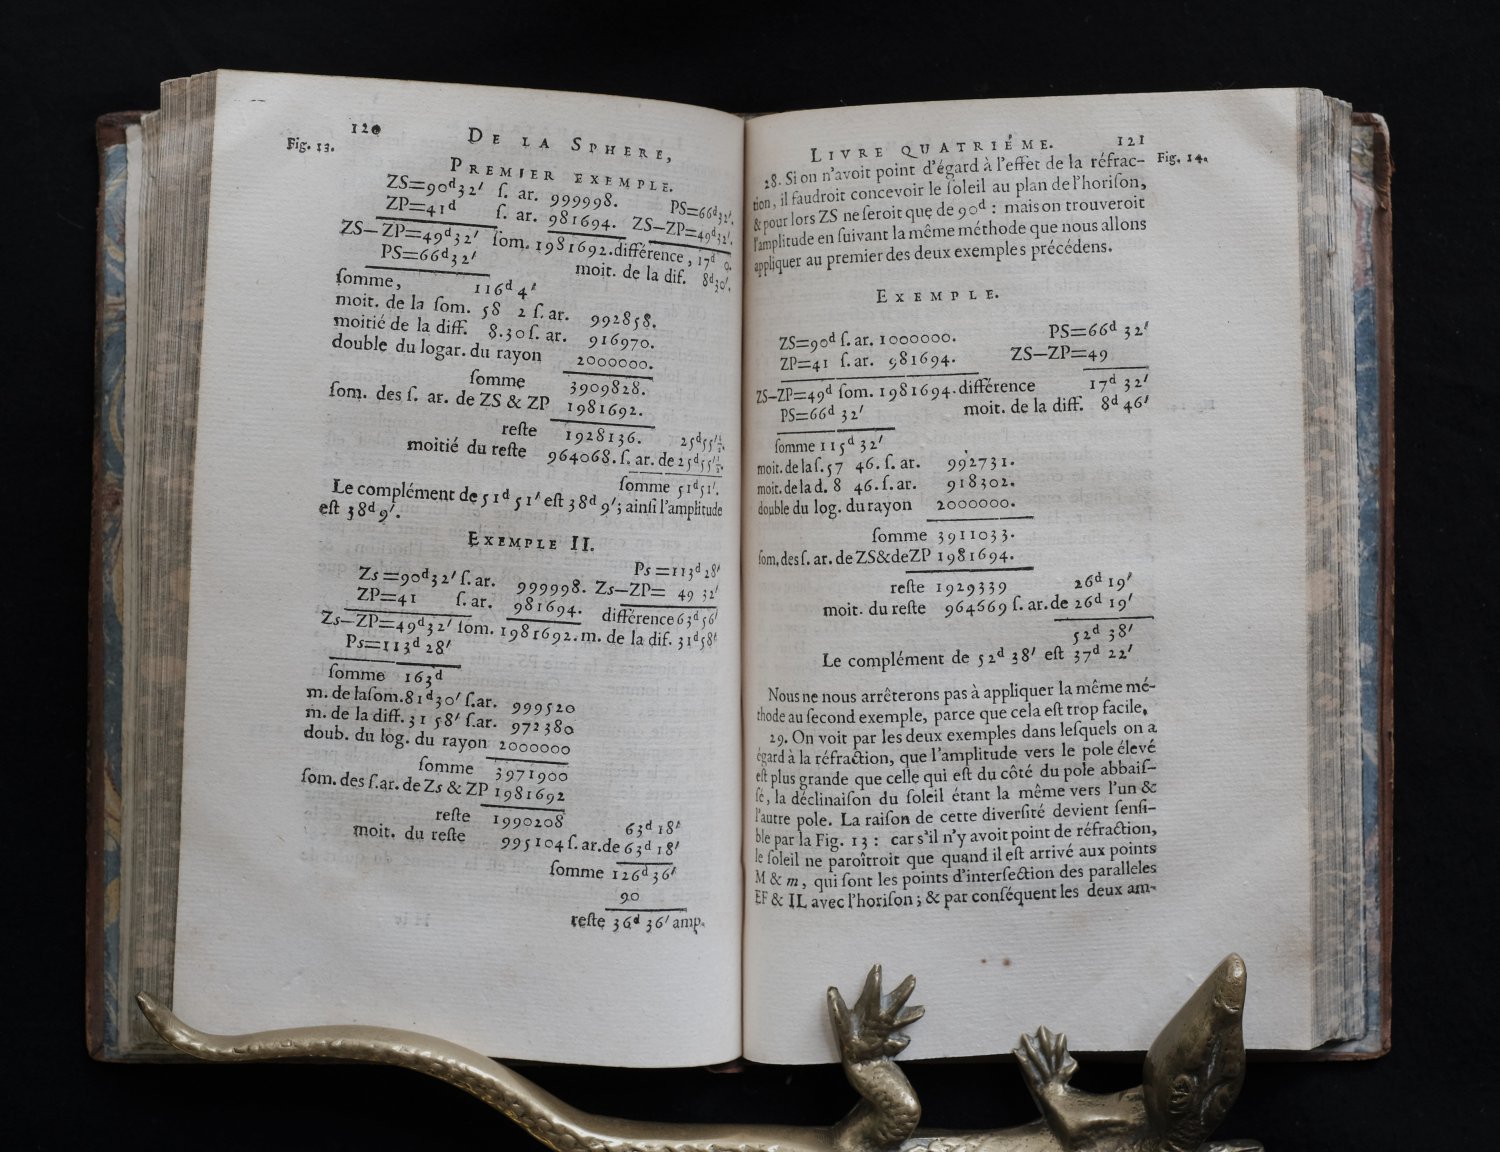 120 DE LA SPHERE,
Fig. 13.
PREMIER EXEMPLE.
ZS=90d32′ ſ. ar. 999998. PS=66d32′.
ZP=41d ſ. ar. 981694. ZS—ZP=49d32′.
ZS—ZP=49d32′ ſom. 1981692. différence, 17d 0.
PS=66d32′ moit. de la dif. 8d30′.
ſomme, 116d 4′
moit. de la ſom. 58 2 ſ. ar. 992858.
moitié de la diff. 8.30 ſ. ar. 916970.
double du logar. du rayon 2000000.
ſomme 3909828.
ſom. des ſ. ar. de ZS & ZP 1981692.
reſte 1928136. 25d55′½.
moitié du reſte 964068. ſ. ar. de 25d55′½.
ſomme 51d51′.
Le complément de 51d 51′ eſt 38d 9′; ainſi l'amplitude
eſt 38d 9′.
EXEMPLE II.
Ps=113d28′
Zs=90d32′ ſ. ar. 999998. Zs—ZP= 49 32′
ZP=41 ſ. ar. 981694. différence 63d56′
Zs—ZP=49d32′ ſom. 1981692. m. de la dif. 31d58′
Ps=113d 28′
ſomme 163d
m. de laſom. 81d30′ ſ.ar. 999520
m. de la diff. 31 58′ ſ.ar. 972380
doub. du log. du rayon 2000000
ſomme 3971900
ſom. des ſ.ar. de Zs & ZP 1981692
reſte 1990208 63d 18′
moit. du reſte 995104 ſ. ar.de 63d 18′
ſomme 126d36′
90
reſte 36d 36′ amp.
LIVRE QUATRIÉME. 121
28. Si on n'avoit point d'égard à l'effet de la réfrac- Fig. 14.
tion, il faudroit concevoir le ſoleil au plan de l'horiſon,
& pour lors ZS ne ſeroit que de 90d : mais on trouveroit
l'amplitude en ſuivant la même méthode que nous allons
appliquer au premier des deux exemples précédens.
EXEMPLE.
ZS=90d ſ. ar. 1000000. PS=66d 32′
ZP=41 ſ. ar. 981694. ZS—ZP=49
ZS—ZP=49d ſom. 1981694. différence 17d 32′
PS=66d 32′ moit. de la diff. 8d 46′
ſomme 115d 32′
moit. de la ſ. 57 46. ſ. ar. 992731.
moit. de la d. 8 46. ſ. ar. 918302.
double du log. du rayon 2000000.
ſomme 3911033.
ſom. des ſ. ar. de ZS&deZP 1981694.
reſte 1929339 26d 19′
moit. du reſte 964669 ſ. ar.de 26d 19′
52d 38′
Le complément de 52d 38′ eſt 37d 22′
Nous ne nous arrêterons pas à appliquer la même mé-
thode au ſecond exemple, parce que cela eſt trop facile.
29. On voit par les deux exemples dans leſquels on a
égard à la réfraction, que l'amplitude vers le pole élevé
eſt plus grande que celle qui eſt du côté du pole abbaiſ-
ſé, la déclinaiſon du ſoleil étant la même vers l'un &
l'autre pole. La raiſon de cette diverſité devient ſenſi-
ble par la Fig. 13 : car s'il n'y avoit point de réfraction,
le ſoleil ne paroîtroit que quand il eſt arrivé aux points
M & m, qui ſont les points d'interſection des paralleles
EF & IL avec l'horiſon ; & par conſéquent les deux am-